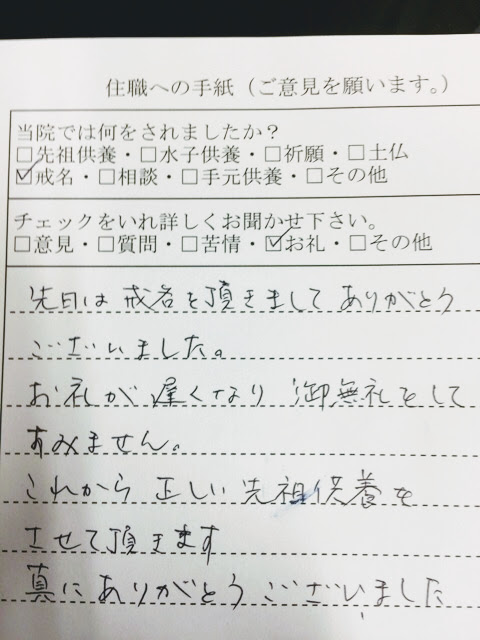 住職への手紙（ご意見を願います。）
当院では何をされましたか？
□先祖供養・□水子供養・□祈願・□土仏
☑戒名・□相談・□手元供養・□その他
チェックをいれ詳しくお聞かせ下さい。
□意見・□質問・□苦情・☑お礼・□その他
先日は戒名を頂きまして ありがとう
ございました。
お礼が遅くなり 御無礼をして
すみません。
これから 正しい 先祖供養を
させて頂きます
真に ありがとう ございました